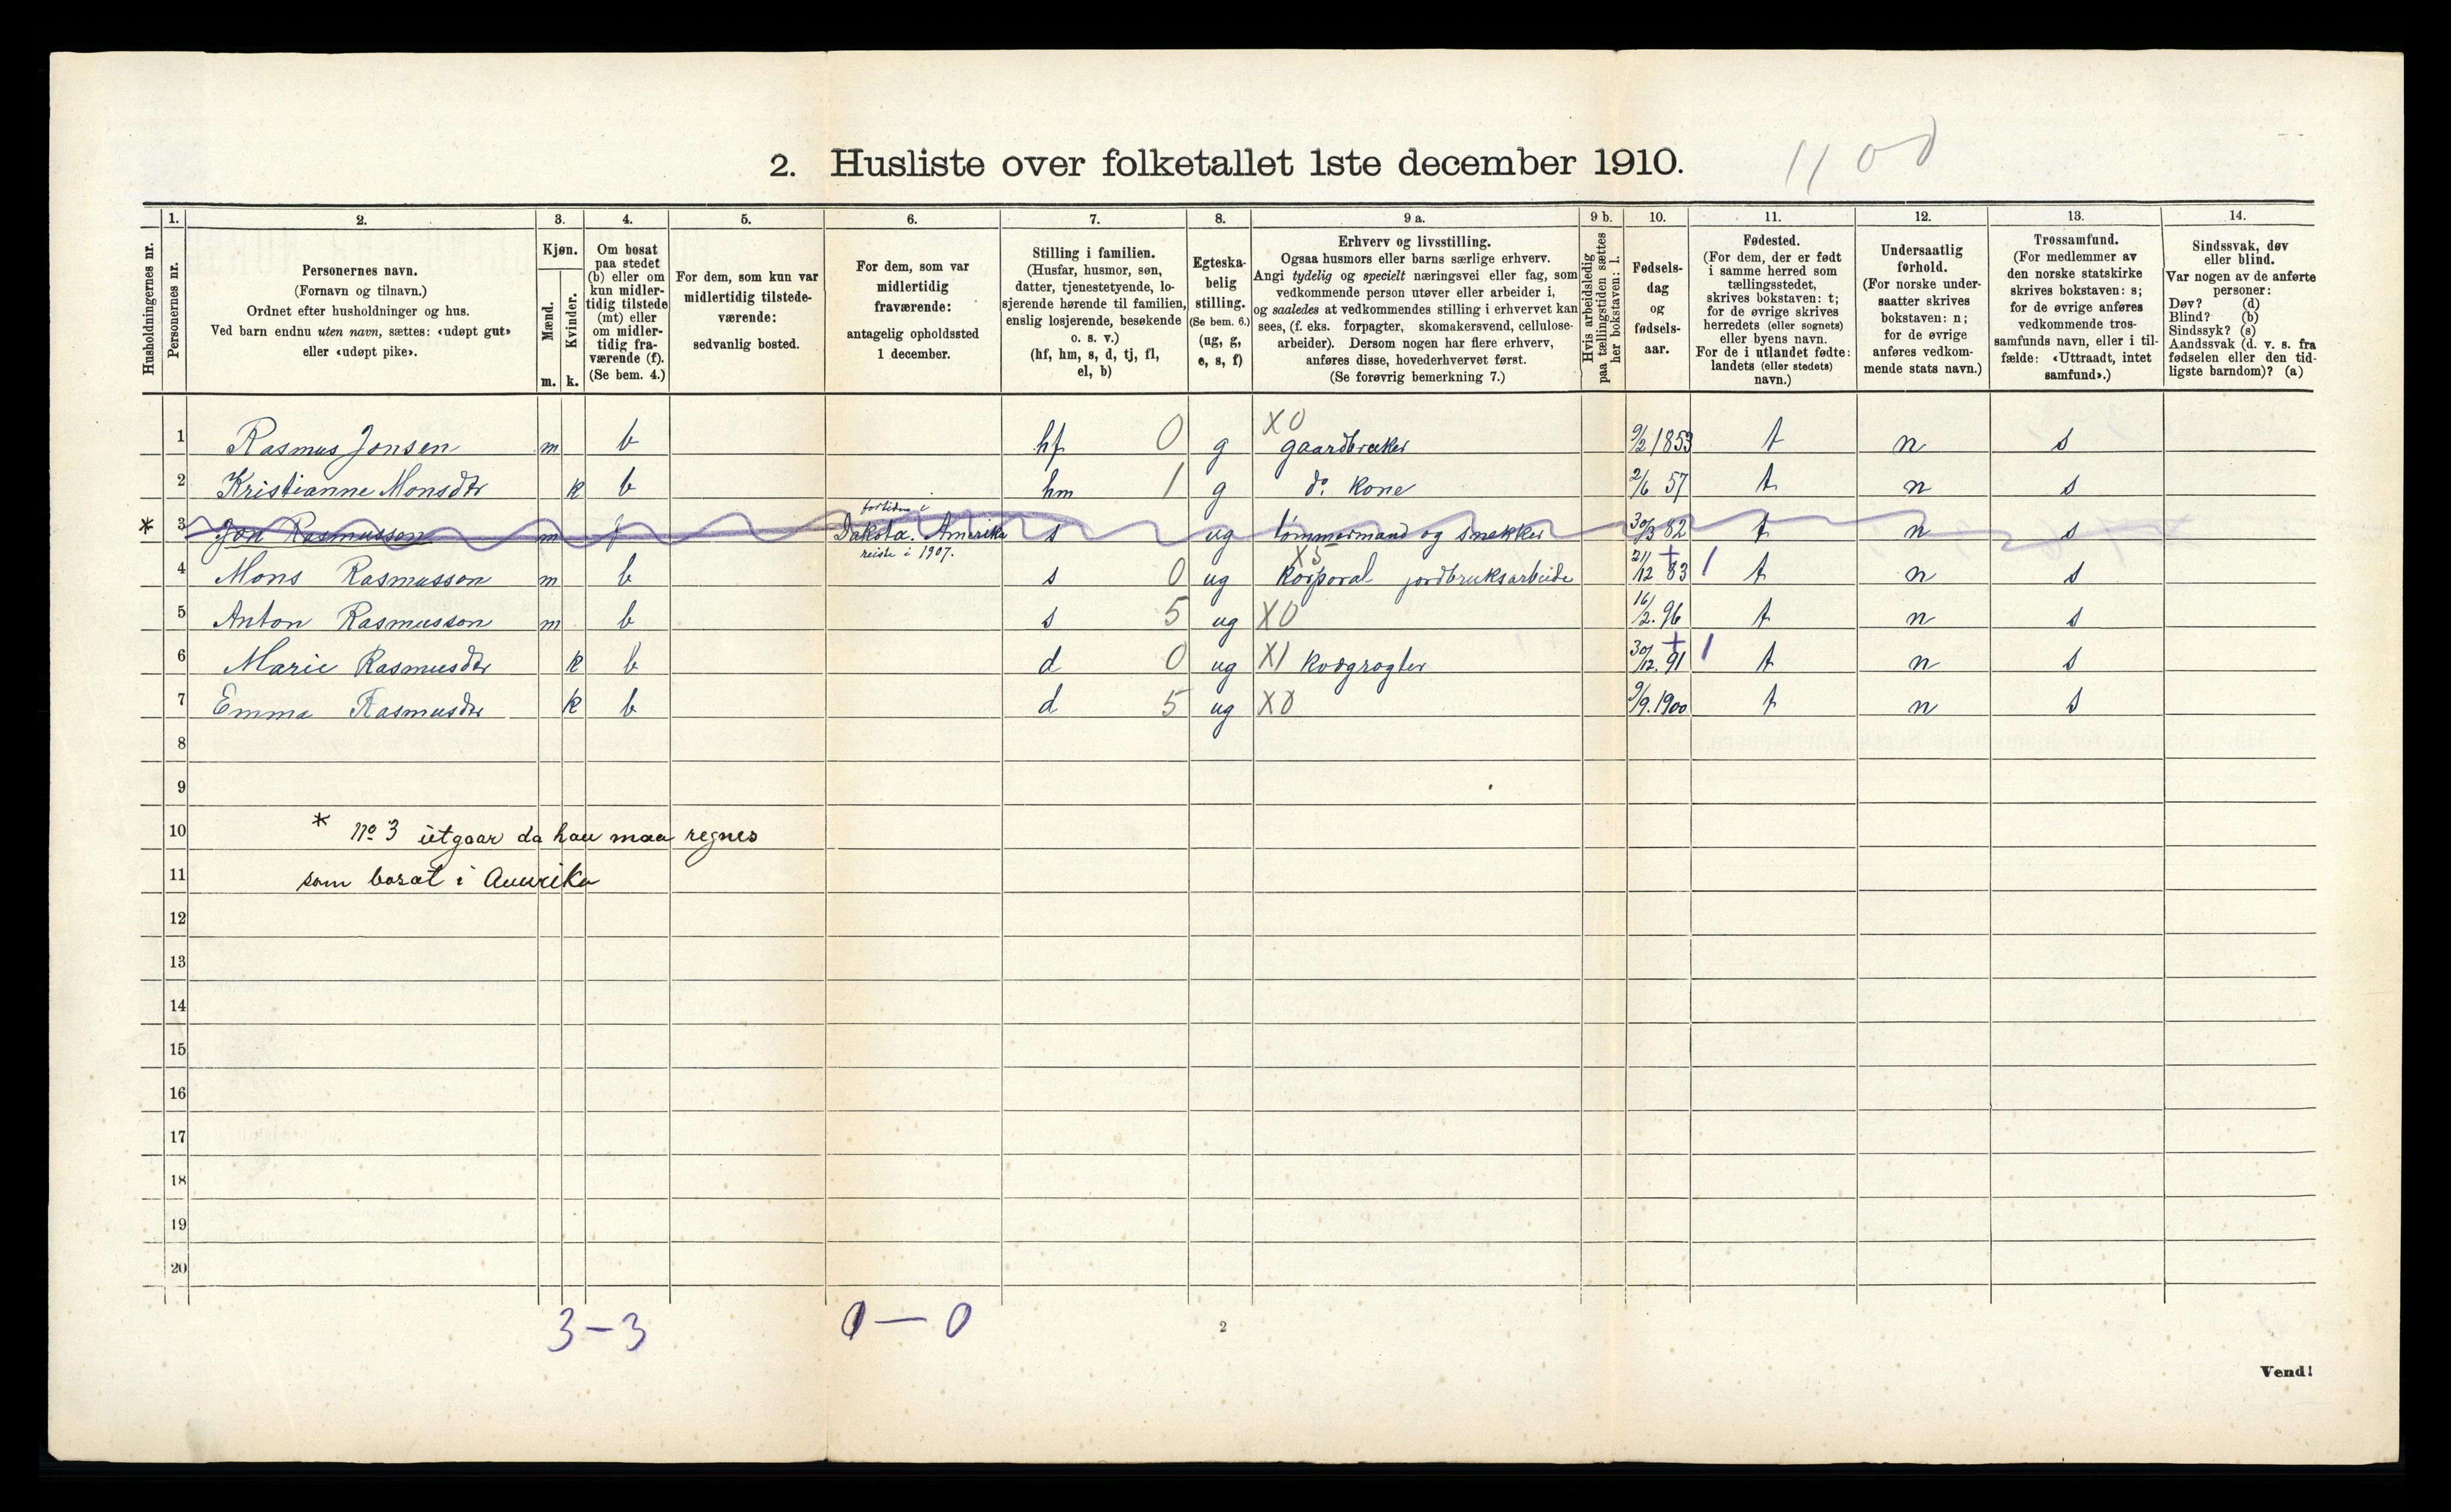 2. Husliste over folketallet 1ste december 1910.
1100
Husholdningernes nr.
1.
Personernes nr.
2.
Personernes navn.
(Fornavn og tilnavn.)
Ordnet efter husholdninger og hus.
Ved barn endnu uten navn, sættes: «udøpt gut»
eller «udøpt pike».
3.
Kjøn.
Mænd.
Kvinder.
m. k.
4.
Om bosat
paa stedet
(b) eller om
kun midler-
tidig tilstede
(mt) eller
om midler-
tidig fra-
værende (f).
(Se bem. 4.)
5.
For dem, som kun var
midlertidig tilstede-
værende:
sedvanlig bosted.
6.
For dem, som var
midlertidig
fraværende:
antagelig opholdssted
1 december.
7.
Stilling i familien.
(Husfar, husmor, søn,
datter, tjenestetyende, lo-
sjerende hørende til familien,
enslig losjerende, besøkende
o. s. v.)
(hf, hm, s, d, tj, fl,
el, b)
8.
Egteska-
belig
stilling.
(Se bem. 6.)
(ug, g,
e, s, f)
9 a.
Erhverv og livsstilling.
Ogsaa husmors eller barns særlige erhverv.
Angi tydelig og specielt næringsvei eller fag, som
vedkommende person utøver eller arbeider i,
og saaledes at vedkommendes stilling i erhvervet kan
sees, (f. eks. forpagter, skomakersvend, cellulose-
arbeider). Dersom nogen har flere erhverv,
anføres disse, hovederhvervet først.
(Se forøvrig bemerkning 7.)
9 b.
Hvis arbeidsledig
paa tællingstiden sættes
her bokstaven: l.
10.
Fødsels-
dag
og
fødsels-
aar.
11.
Fødested.
(For dem, der er født
i samme herred som
tællingsstedet,
skrives bokstaven: t;
for de øvrige skrives
herredets (eller sognets)
eller byens navn.
For de i utlandet fødte:
landets (eller stedets)
navn.)
12.
Undersaatlig
forhold.
(For norske under-
saatter skrives
bokstaven: n;
for de øvrige
anføres vedkom-
mende stats navn.)
13.
Trossamfund.
(For medlemmer av
den norske statskirke
skrives bokstaven: s;
for de øvrige anføres
vedkommende tros-
samfunds navn, eller i til-
fælde: «Uttraadt, intet
samfund».)
14.
Sindssvak, døv
eller blind.
Var nogen av de anførte
personer:
Døv? (d)
Blind? (b)
Sindssyk? (s)
Aandssvak (d. v. s. fra
fødselen eller den tid-
ligste barndom)? (a)
1 Rasmus Jonsen m b hf 0 g X0 gaardbruker 9/2 1853 t n s
2 Kristianne Monsdtr k b hm 1 g do. kone 2/6 57 t n s
* 3 Jon Rasmusson m f fortiden i Dakota. Amerika reiste i 1907. s ug tømmermand og snekker 30/3 82 t n s
4 Mons Rasmusson m b s 0 ug X5 Korporal jordbruksarbeide 21/12 83 + 1 t n s
5 Anton Rasmusson m b s 5 ug X0 16/2. 96 t n s
6 Marie Rasmusdtr k b d 0 ug X1 kvægrøgter 30/12. 91 + 1 t n s
7 Emma Rasmusdtr k b d 5 ug X0 9/9. 1900 t n s
8
9
10 * No 3 utgaar da han maa regnes
11 som bosat i Amerika
12
13
14
15
16
17
18
19
20
3 - 3 0 - 0
2
Vend!